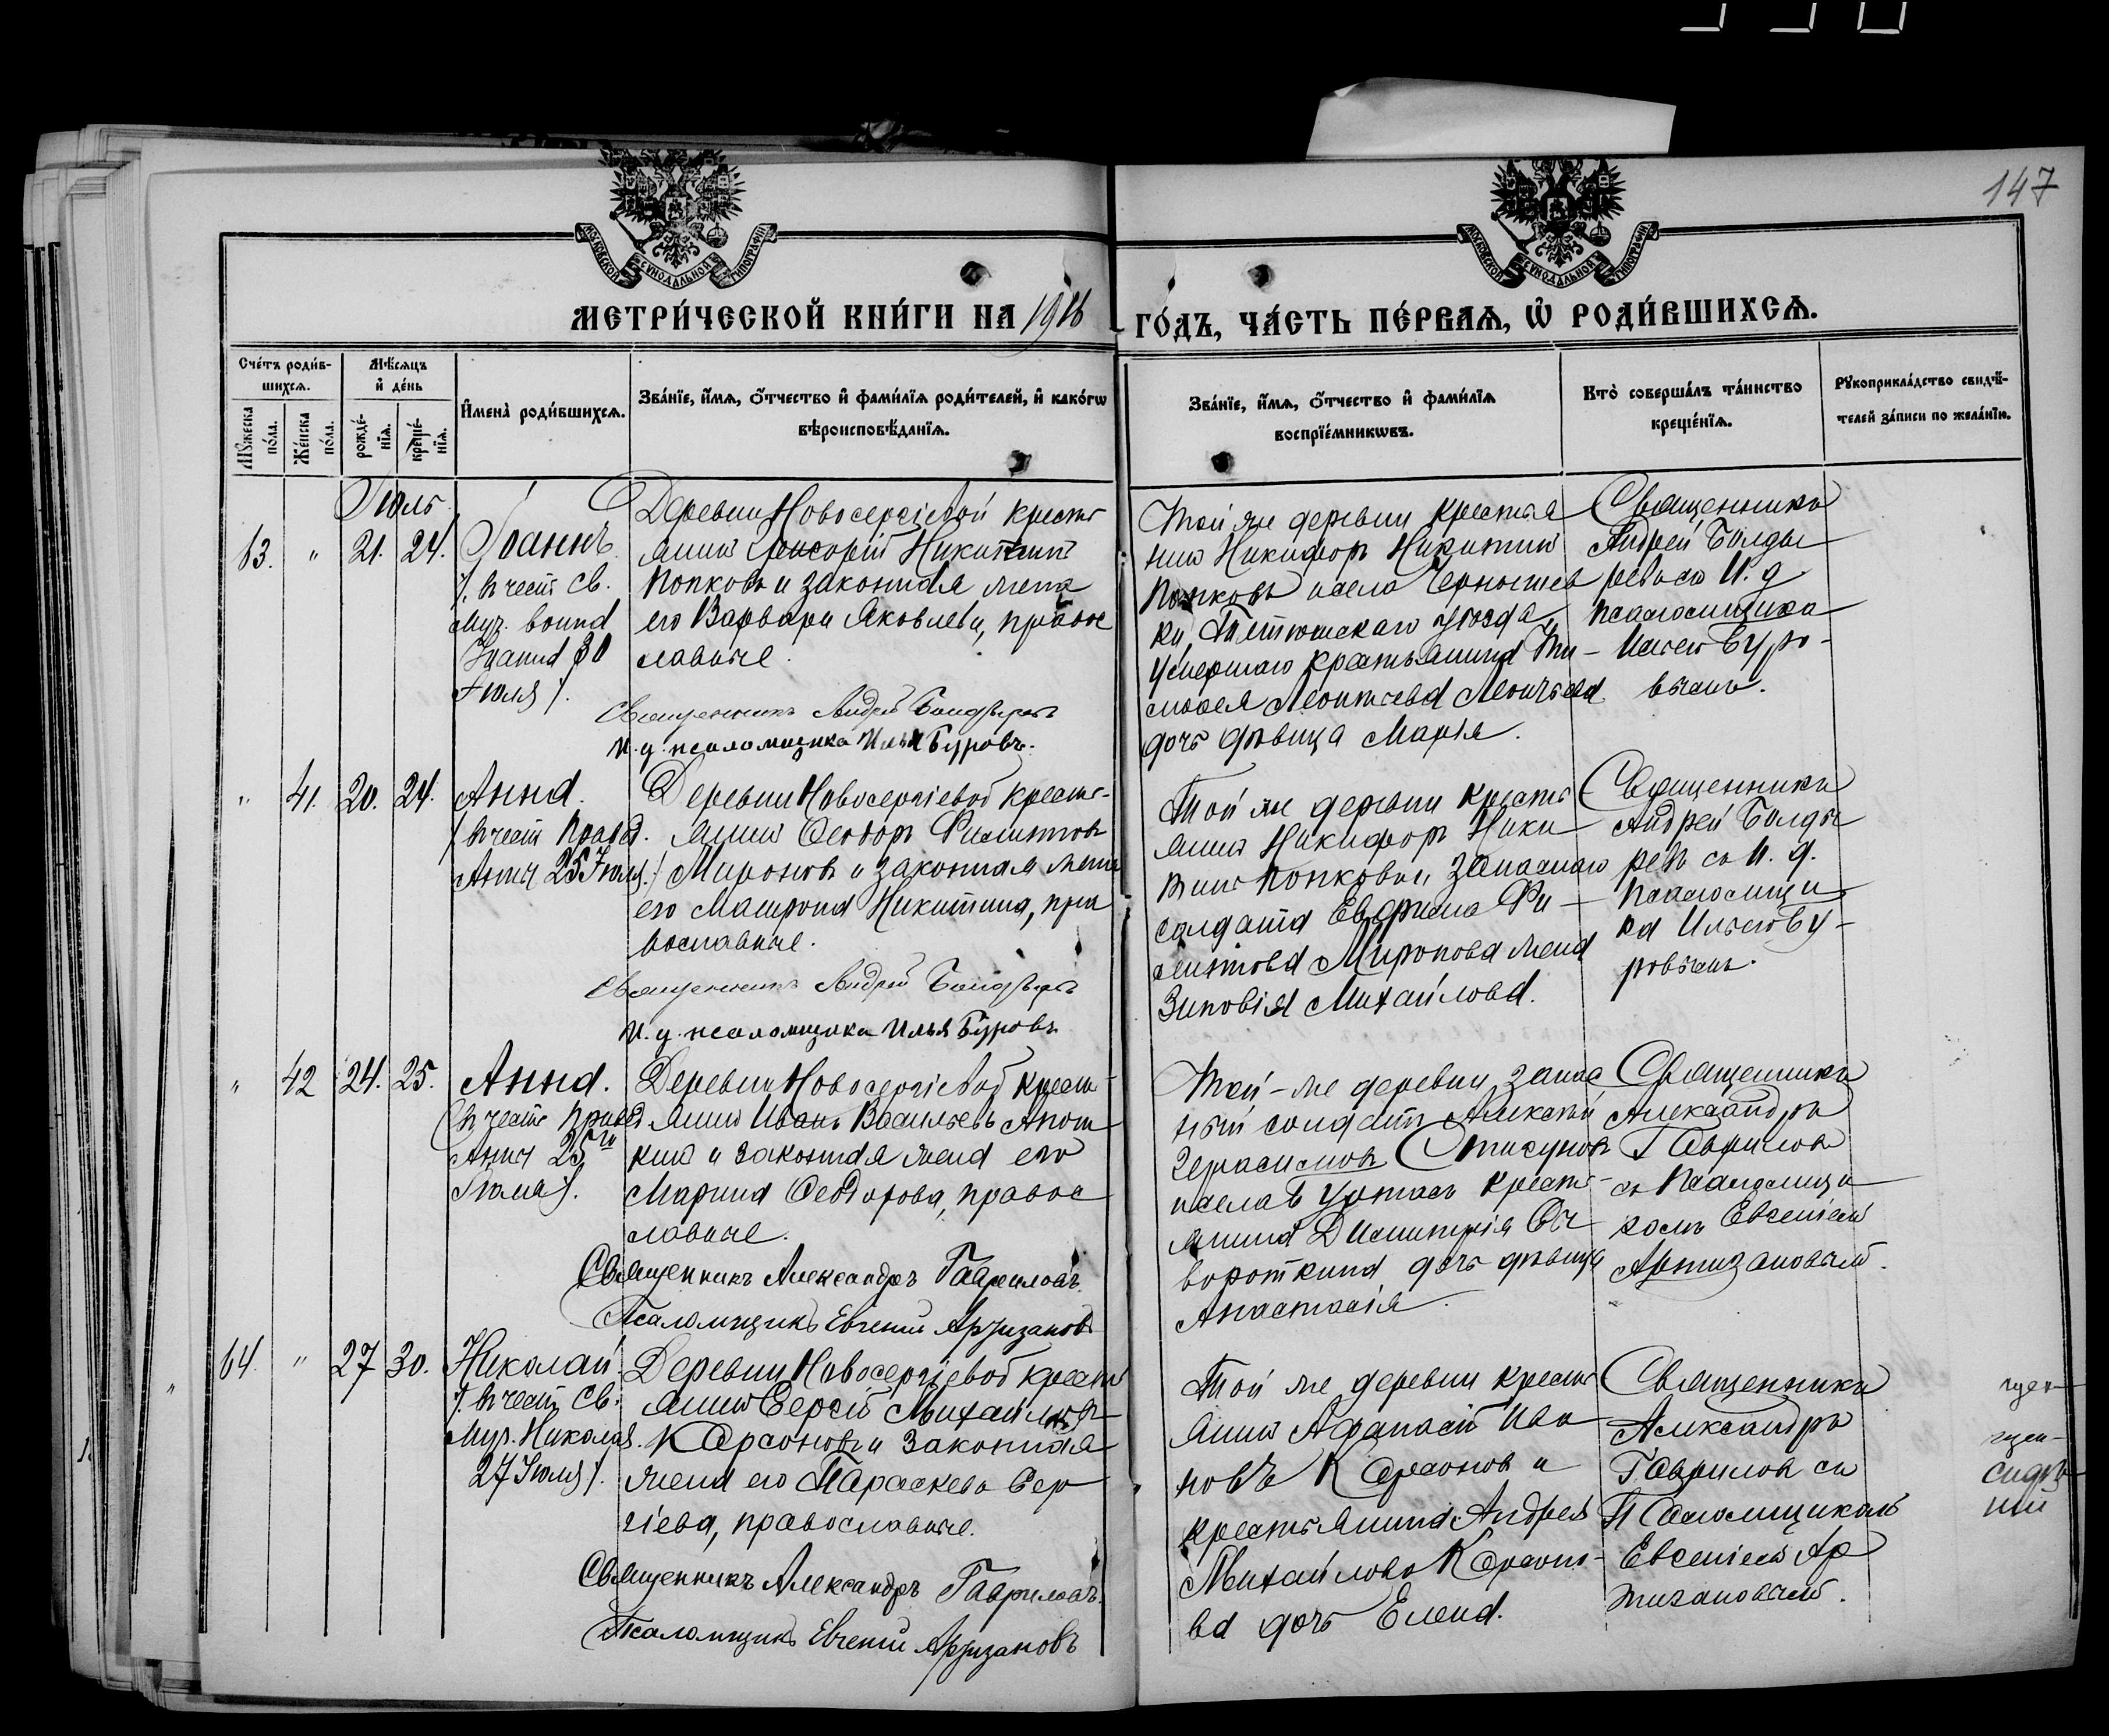 147
МОСКОВСКОЙ СѴНОДАЛЬНОЙ ТИПОГРАФІИ
МОСКОВСКОЙ СѴНОДАЛЬНОЙ ТИПОГРАФІИ
МЕТРИ́ЧЕСКОЙ КНИ́ГИ НА 1916 ГО́ДЪ, ЧА́СТЬ ПЕ́РВАѦ, Ѡ҆ РОДИ́ВШИХСѦ.
Счéтъ роди́в-
шихсѧ.
Мꙋ́жеска по́ла.
Же́нска по́ла.
Мѣ́сѧцъ
и҆ де́нь
рожде́-
нїѧ.
креще́-
нїѧ.
И҆мена̀ роди́вшихсѧ.
Зва́нїе, и҆́мѧ, ѻ҆́тчество и҆ фами́лїѧ роди́телей, и҆ како́гѡ
вѣроисповѣ́данїѧ.
Зва́нїе, и҆́мѧ, ѻ҆́тчество и҆ фами́лїѧ
воспрїе́мникѡвъ.
Кто̀ соверша́лъ та́инство
креще́нїѧ.
Рꙋкоприкла́дство свидѣ́-
телей за́писи по жела́нїю.
Іюль
63. " 21. 24. Іоаннъ.
/. въ честь Св.
Муч. воина
Іоанна 30
Іюля /.
Деревни Новосергіевой кресть
янинъ Григорій Никитинъ
Попковъ и законная жена
его Варвара Яковлева, правос
лавные.
Священникъ Андрей Болдыревъ
И. д. псаломщика Илья Буровъ.
Той же деревни крестья
нинъ Никифоръ Никитинъ
Попковъ и села
ки, Тетюшскаго уѣзда,
умершаго крестьянина Ти-
мофея Леонтьева
дочь дѣвица Марія.
Священникъ
Андрей Болды
ревъ съ И. д.
псаломщика
Ильею Буро-
вымъ.
" 41. 20. 24. Анна.
/ въ честь Правед.
Анны 25 Іюля. /
Деревни Новосергіевой кресть-
янинъ Ѳеодоръ Филиппов
Мироновъ и законная жена
его Матрона Никитина, пра
вославные.
Священникъ Андрей Болдыревъ
И. д. псаломщика Илья Буровъ.
Той же деревни кресть
янинъ Никифоръ Ники
тинъ Попковъ и запаснаго
солдата Евфима Фи-
липпова Миронова жена
Зиновія Михайлова.
Священникъ
Андрей Болды
ревъ съ И. д.
Псаломщи
ка Ильею Бу-
ровымъ.
" 42 24. 25. Анна.
(въ честь Правед
Анны 25го
Іюля /.
Деревни Новосергіевой кресть-
янинъ Иванъ Васильевъ
и законная жена его
Марина Ѳеодорова, правос
лавные.
Священникъ Александръ Гавриловъ.
Псаломщикъ Евгеній Артизановъ
Той-же деревни запас
ный солдатъ Алексѣй
Герасимовъ
и села кресть-
янина Димитрія
вороткина, дочь дѣвица
Анастасія.
Священникъ
Александръ
Гавриловъ
съ Псаломщи
комъ Евгеніемъ
Артизановымъ.
64. " 27 30. Николай.
/. въ честь Св.
Муч. Николая.
27 Іюля /.
Деревни Новосергіевой кресть
янинъ Сергій Михайловъ
Карсоновъ и законная
жена его Параскева Сер
гіева, православные.
Священникъ Александръ Гавриловъ.
Псаломщикъ Евгеній Артизановъ
Той же деревни кресть
янинъ Аѳанасій Ива
новъ Карсоновъ и
крестьянина Андрея
Михайлова Карсоно-
ва дочь Елена.
Священникъ
Александръ
Гавриловъ съ
Псаломщикомъ
Евгеніемъ Ар
тизановымъ.